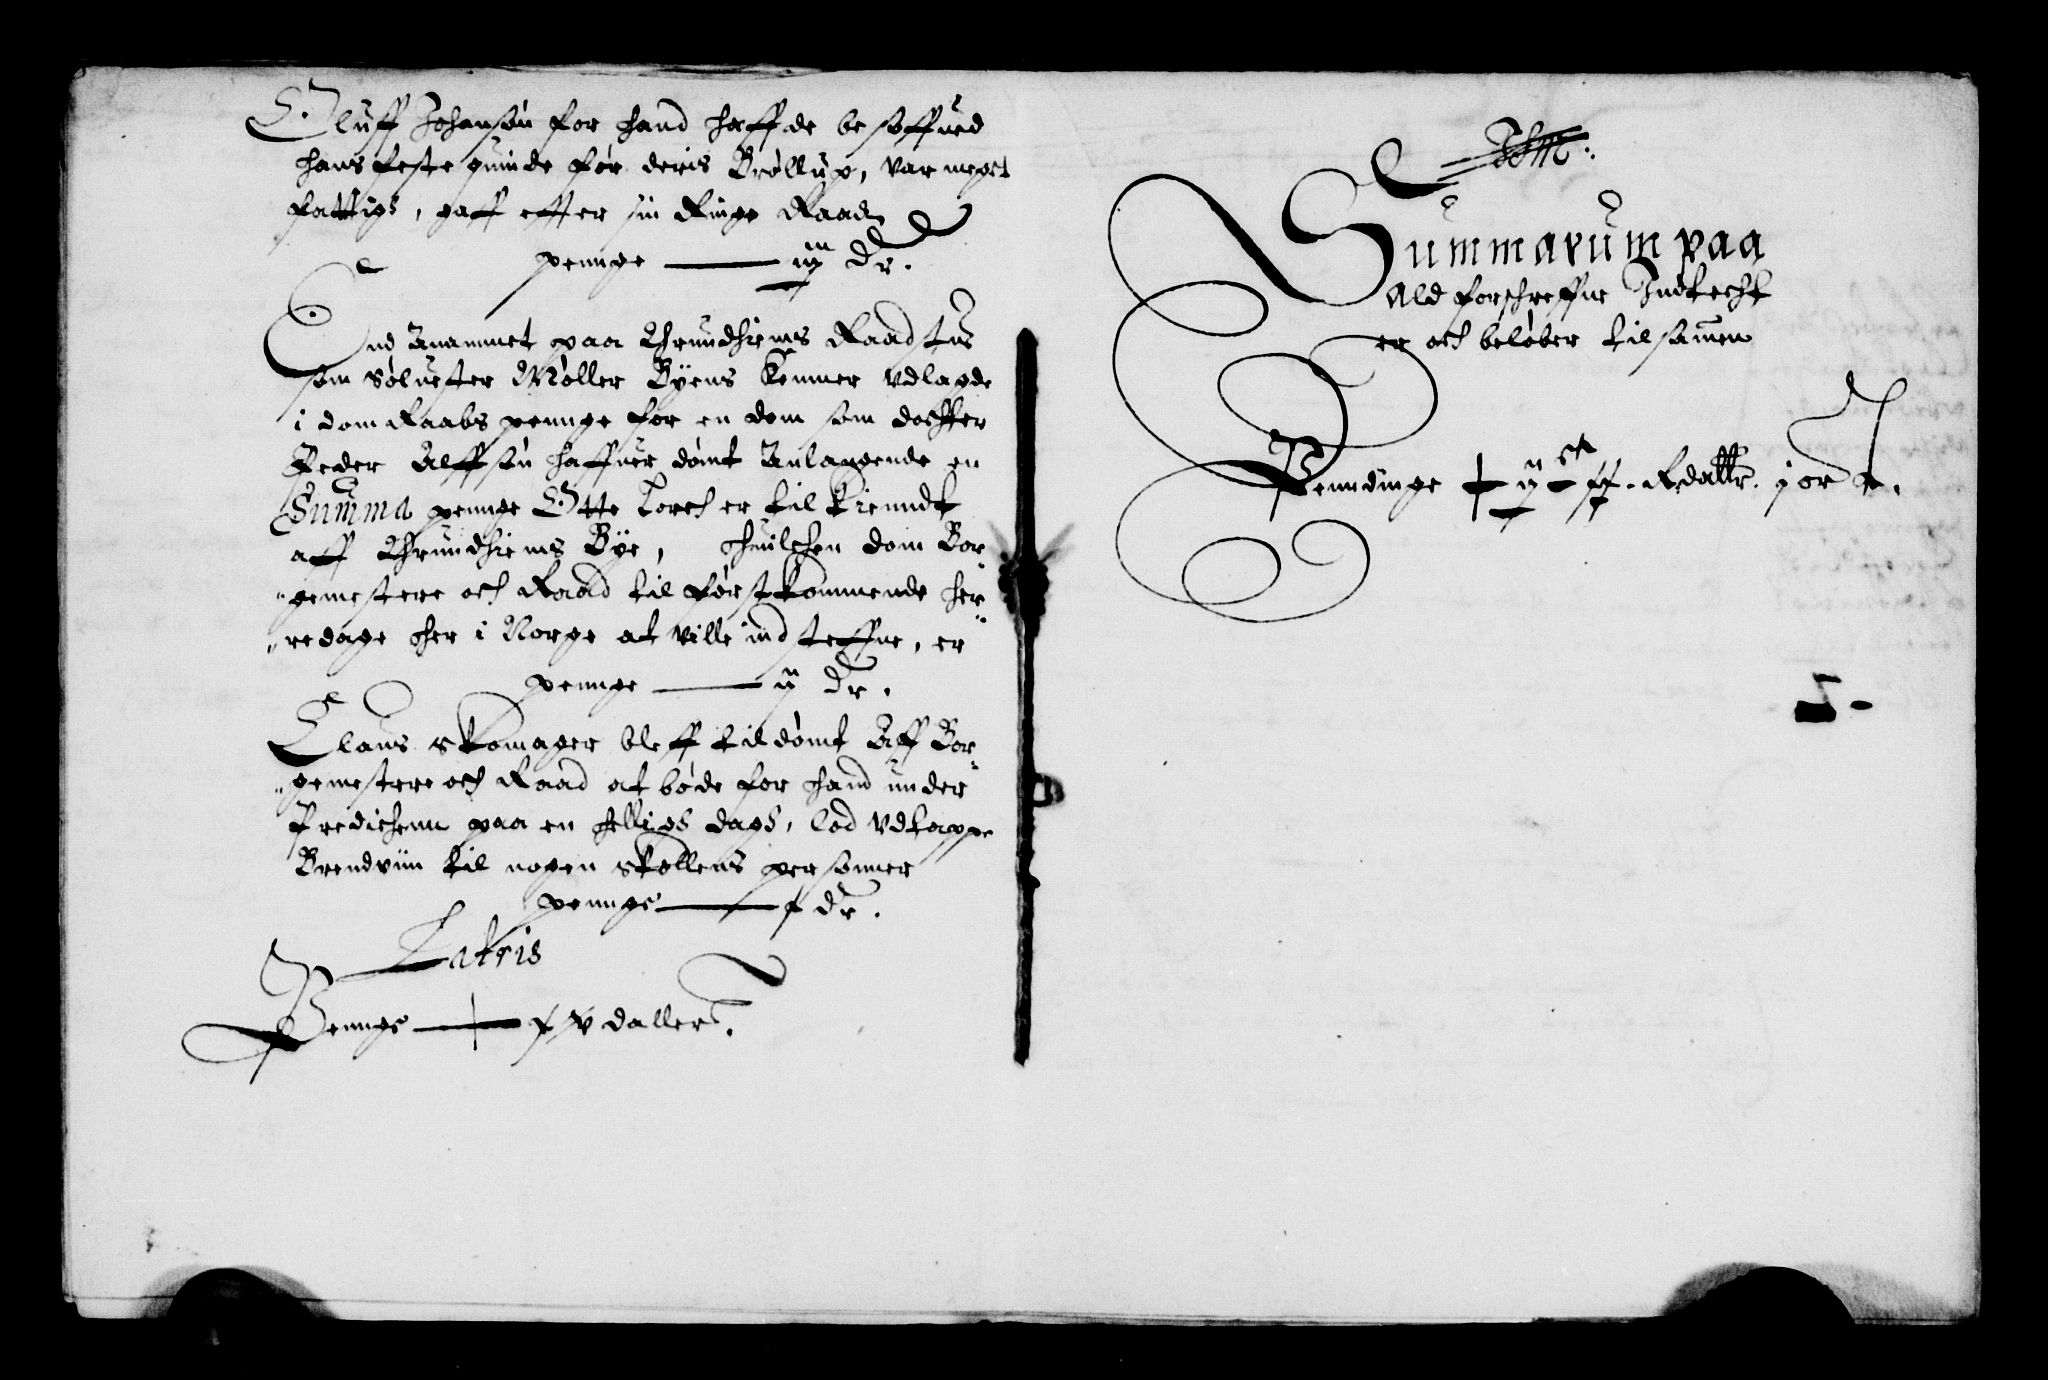 Oluff Johansøn for hand haffde besoffued
hans feste quinde før deris Brøllup, var meget
fattigs, gaff effter sin Ringe Raad
penge — iij dr.
End Anammet paa Thrundhiems Raadstue
som Søluester Møller Byens Kemner vdlagde
i dom Raabs penge for en dom som docter
Peder Alffsøn haffuer dømt Anlangende en
Summa penge Otte Lorch er til Kiendt
aff Thrundhiems Bye, huilchen dom Bor
gemestere och Raad til førstkommende Her
redage her i Norge at ville indsteffne, er
penge — ij dr.
Claus Skomager bleff tildømt Aff Bor
gemestere och Raad at bøde for hand under
Predichenn paa en helligs dags, lod vdtappe
Brendviin til nogen skollens personner
penge — j dr.
Latris
Penge — xv daller.
Summarum paa
Ald forschreffne Indtecht
er och beløber tilsamen
Penndinge Rdallr. j ort